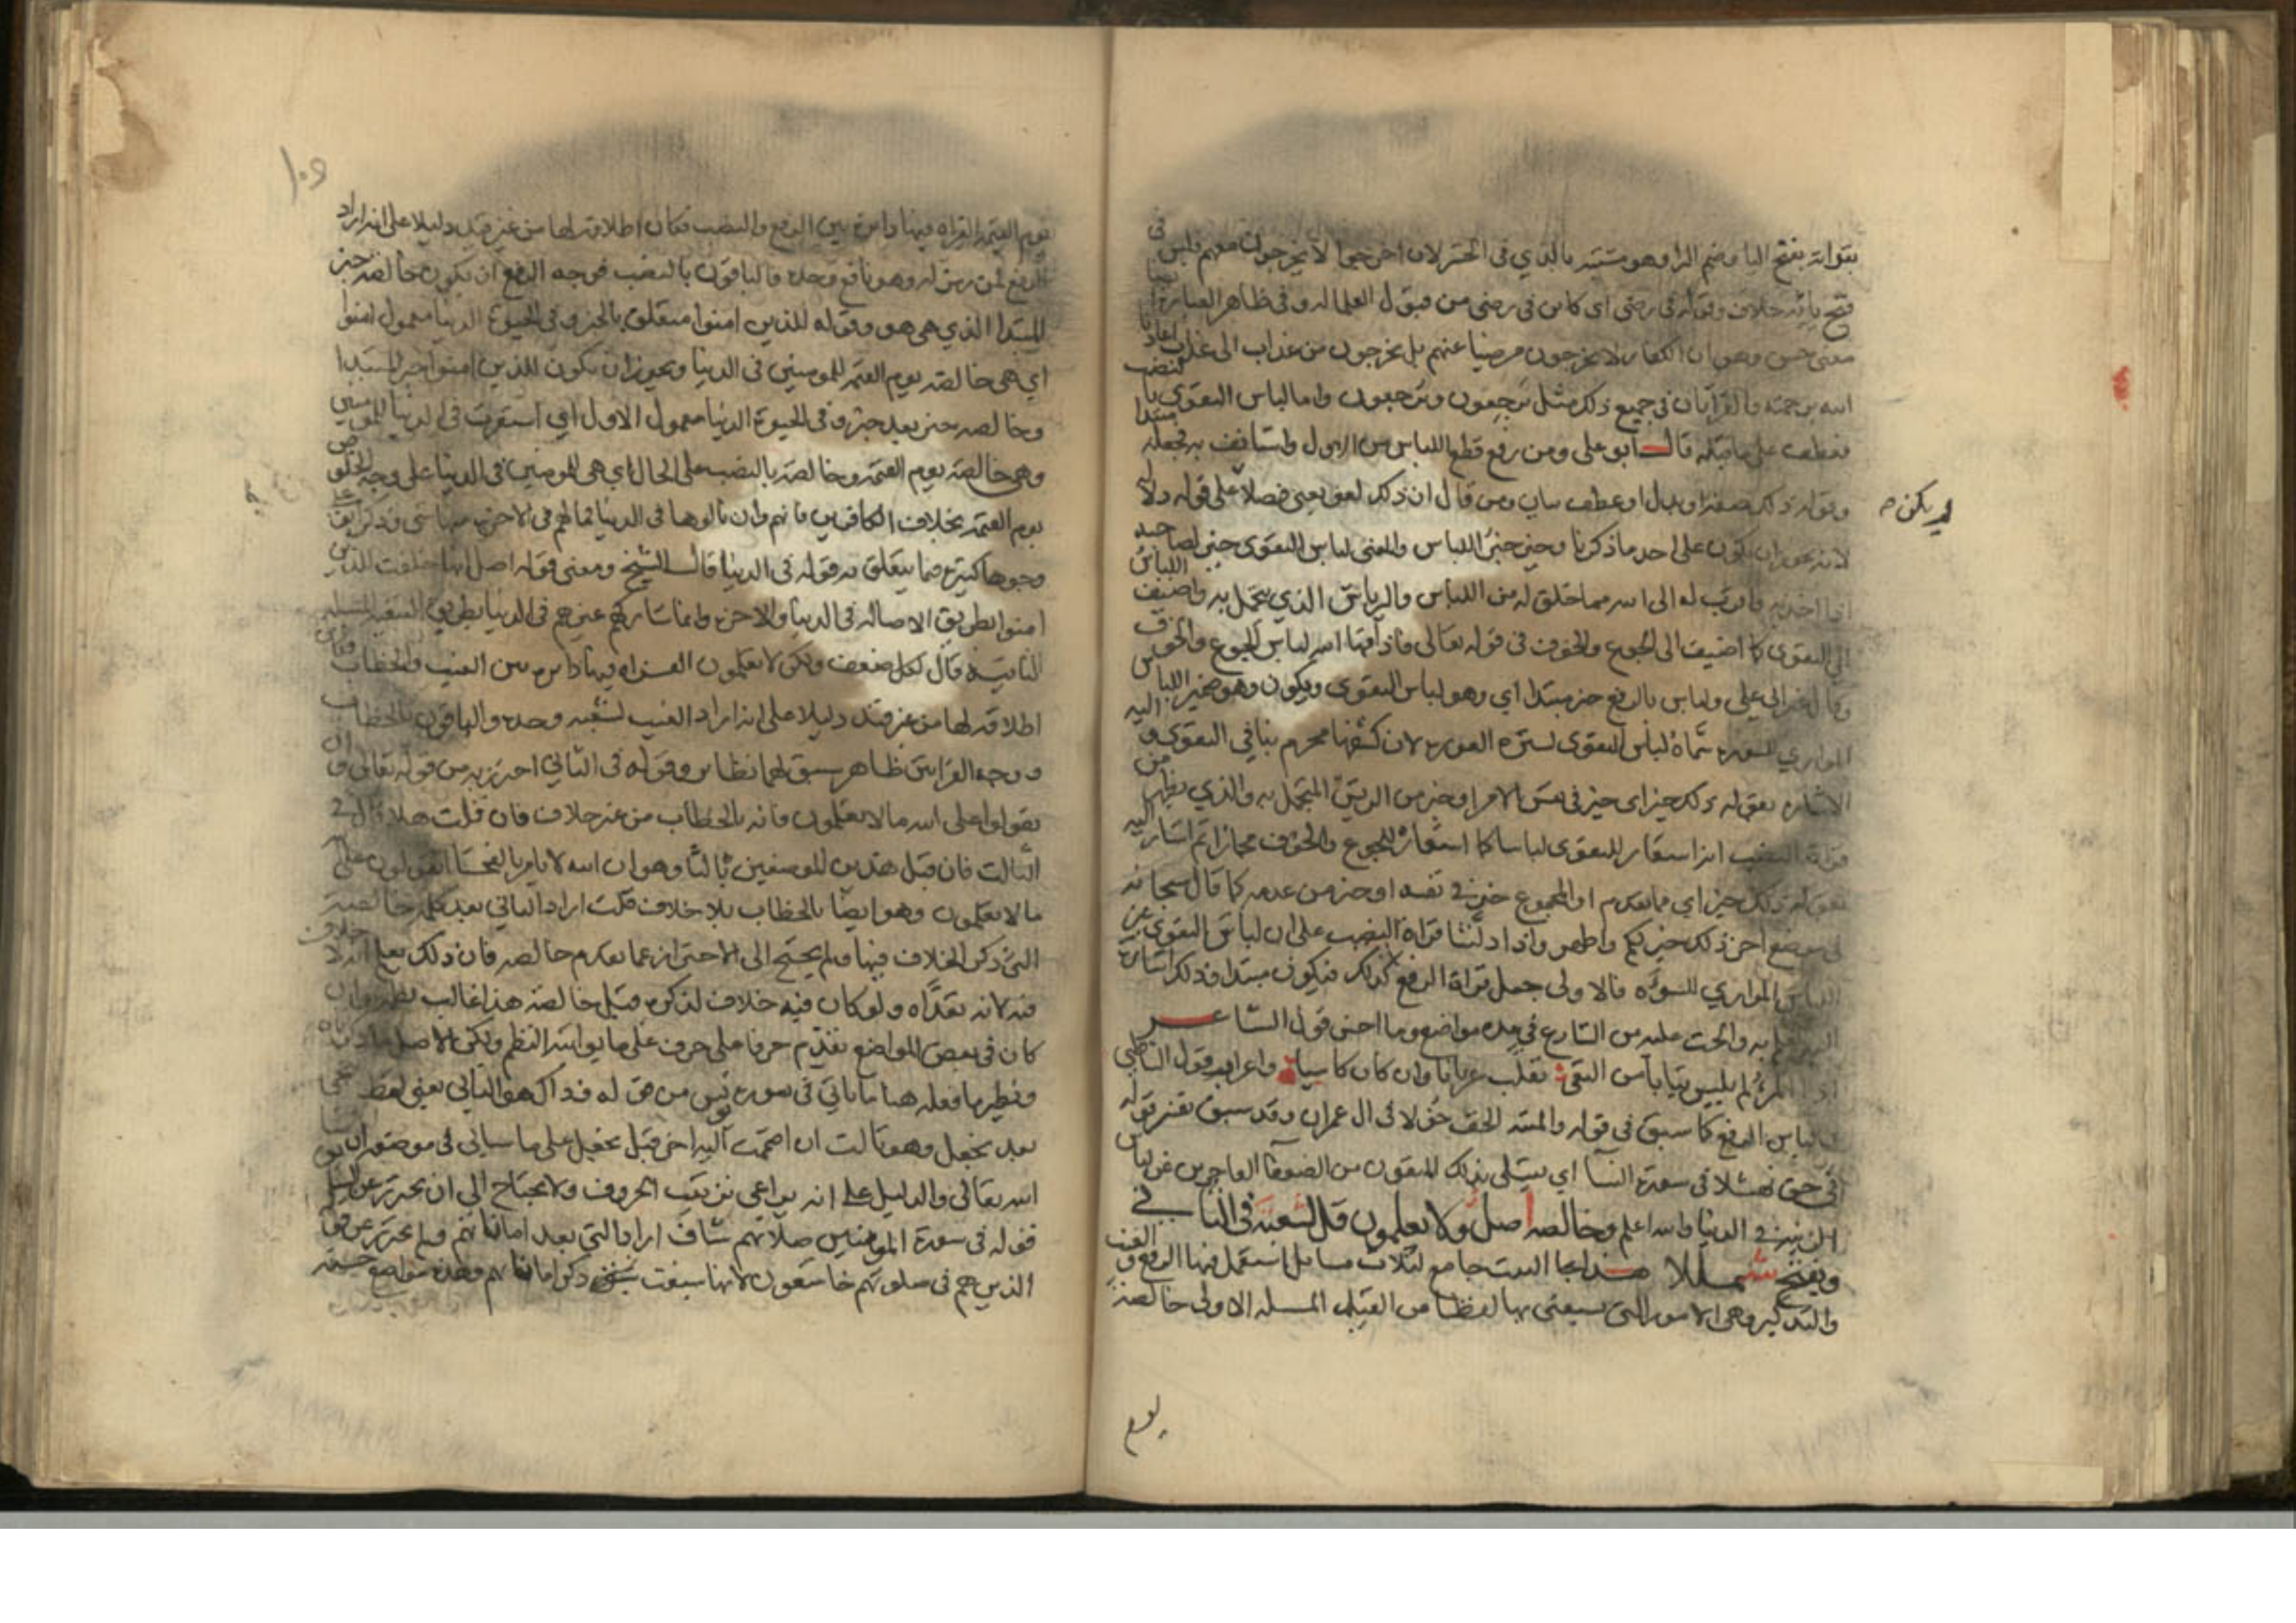 بقوله بفتح اليا وضم الرا وهو مشتبه بالذي في الحشر لان اخرجوا لا يخرجون معهم وليس في
فتح يائه خلاف وقوله في رضى اى كاين في رضى من قبول العلما له وفي ظاهر العبارة ايضا
معنى حسن وهو ان الكفار لا يخرجون مرضيا عنهم بل يخرجون من عذاب الى عذاب
الله برحمته والقراتان في جميع ذلك مثل ترجعون وترجعون واما لباس التقوى بالنصب
فعطف على ما قبله قال ابو علي ومن رفع قطع اللباس من الاول واستانف به فجعله مبتدا
وقوله ذلك صفة او بدل او عطف بيان ومن قال ان ذلك لغو يعني فصلا على قوله دلالة
لم يكن
لانه يجوز ان يكون على احد ما ذكرنا وخير خبر اللباس والمعنى لباس التقوى خير لصاحبه
اذا اخذ به واقرب له الى الله مما خلق له من اللباس والرياش الذي يتجمل به واضيف اللباس
الى التقوى كما اضيف الى الجوع والخوف في قوله تعالى فاذاقها الله لباس الجوع والخوف
وقال غير ابي علي ولباس بالرفع خبر مبتدا اي وهو لباس التقوى ويكون وهو ضمير اللباس
المواري للسوءة سماه لباس التقوى لستره العورة لان كشفها محرم ينافي التقوى و اليه
الاشارة بقوله ذلك خير اى خير في نفس الامر او خير من الريش المتجمل به والذي يظهر من
قراة النصب انه استعار للتقوى لباسا كما استعاره للجوع والخوف مجازا ثم اشار اليه
بقوله ذلك خير اي ما تقدم او المجموع خير في نفسه او خير من عدمه كما قال سبحانه
في موضع اخر ذلك خير لكم واطهر واذا دلتنا قراة النصب على ان لباس التقوى غير
اللباس المواري للسوءة فالاولى جعل قراة الرفع كذلك فيكون مبتدا وذلك اشارة
اليه به والحث عليه من الشارع في عدة مواضع وما احسن قول الشاعر
اذا المرء لم يلبس ثيابا من التقى تقلب عريانا وان كان كاسيا واعراب قول الشاطبي
ولباس الرفع كما سبق في قوله والميتة الخف خولا في ال عمران وقد سبق تفسير قوله
في حق نهشلا في سورة النسا اي يبتلى بذلك المتقون من الضعفا العاجزين عن لباس
الزينة في الدنيا والله اعلم وخالصة اصل ولا يعلمون قل لشعبة في الثاني
ويفتح شمللا هذا البيت جامع لثلاث مسايل استعمل فيها الرفع والغيب
والتذكير وهي الامور التي يستغنى بها لفظا عن القيد المسلة الاولى خالصة
يوم
١٠٥
يوم القيمة القراه فيها دايرة بين الرفع والنصب فكان اطلاقه لها من غير قيد دليلا على انه اراد
الرفع لمن رمز له وهو نافع وحده والباقون بالنصب فوجه الرفع ان يكون خالصة خبر
المبتدا الذي هي هو وقوله للذين امنوا متعلق بالخبر وفي الحيوة الدنيا معمول امنوا
اي هي خالصة يوم القيمة للمومنين في الدنيا ويجوز ان يكون للذين امنوا خبر المبتدا
وخالصة خبر بعد خبر وفي الحيوة الدنيا معمول الاول اي استقرت في الدنيا للمومنين
وهي خالصة يوم القيمة وخالصة بالنصب على الحال اي هي للمومنين في الدنيا على وجه الخلوص
يوم القيمة بخلاف الكافرين فانهم وان نالوها في الدنيا فما لهم في الاخرة منها شى وذكر ابو علي
وجوها كثيرة فيما يتعلق به قوله في الدنيا قال الشيخ ومعنى قوله اصل انها خلقت للذين
امنوا بطريق الاصالة في الدنيا والاخرة وانما شاركهم غيرهم في الدنيا بطريق التبعية المسلة
الثانية قال لكل ضعف ولكن لا يعلمون القراه فيها دايرة بين الغيب والخطاب وكان
اطلاقه لها من غير قيد دليلا على انه اراد الغيب لشعبة وحده والباقون بالخطاب
ووجه القراتين ظاهر سبق لهما نظاير وقوله في الثاني احترز به من قوله تعالى وان
تقولوا على الله ما لا تعلمون فانه بالخطاب من غير خلاف فان قلت هلا قال في
الثالث فان قبل هذين الموضعين ثالثا وهو ان الله لا يامر بالفحشا اتقولون على الله
ما لا تعلمون وهو ايضا بالخطاب بلا خلاف قلت اراد الثاني بعد كلمة خالصة
التي ذكر الخلاف فيها ولم يحتج الى الاحتراز عما تقدم خالصة فان ذلك يعلم انه لا خلاف
فيه لانه تعداه ولو كان فيه خلاف لذكره قبل خالصة هذا غالب نظمه وان
كان في بعض المواضع يقدم حرفا على حرف على ما يواتيه النظم ولكن الاصل ما ذكرناه
ونظير ما فعله هنا ما ياتي في سورة يونس من حق له فذاك هو الثاني يعني لفظ
بعد يجعل وهو قالت ان اضمت اليه اخرى قبل يجعل على ما سياتي في موضعه ان شا
الله تعالى والدليل على انه يراعي ترتيب الحروف ولا يحتاج الى ان يحترز عن السابق
قوله في سورة المومنين صلاتهم شاف اراد التي بعد اماناتهم ولم يحترز عن قوله
الذين هم في صلوتهم خاشعون لانها سبقت ذكر اماناتهم وهذه مواضع حسنة